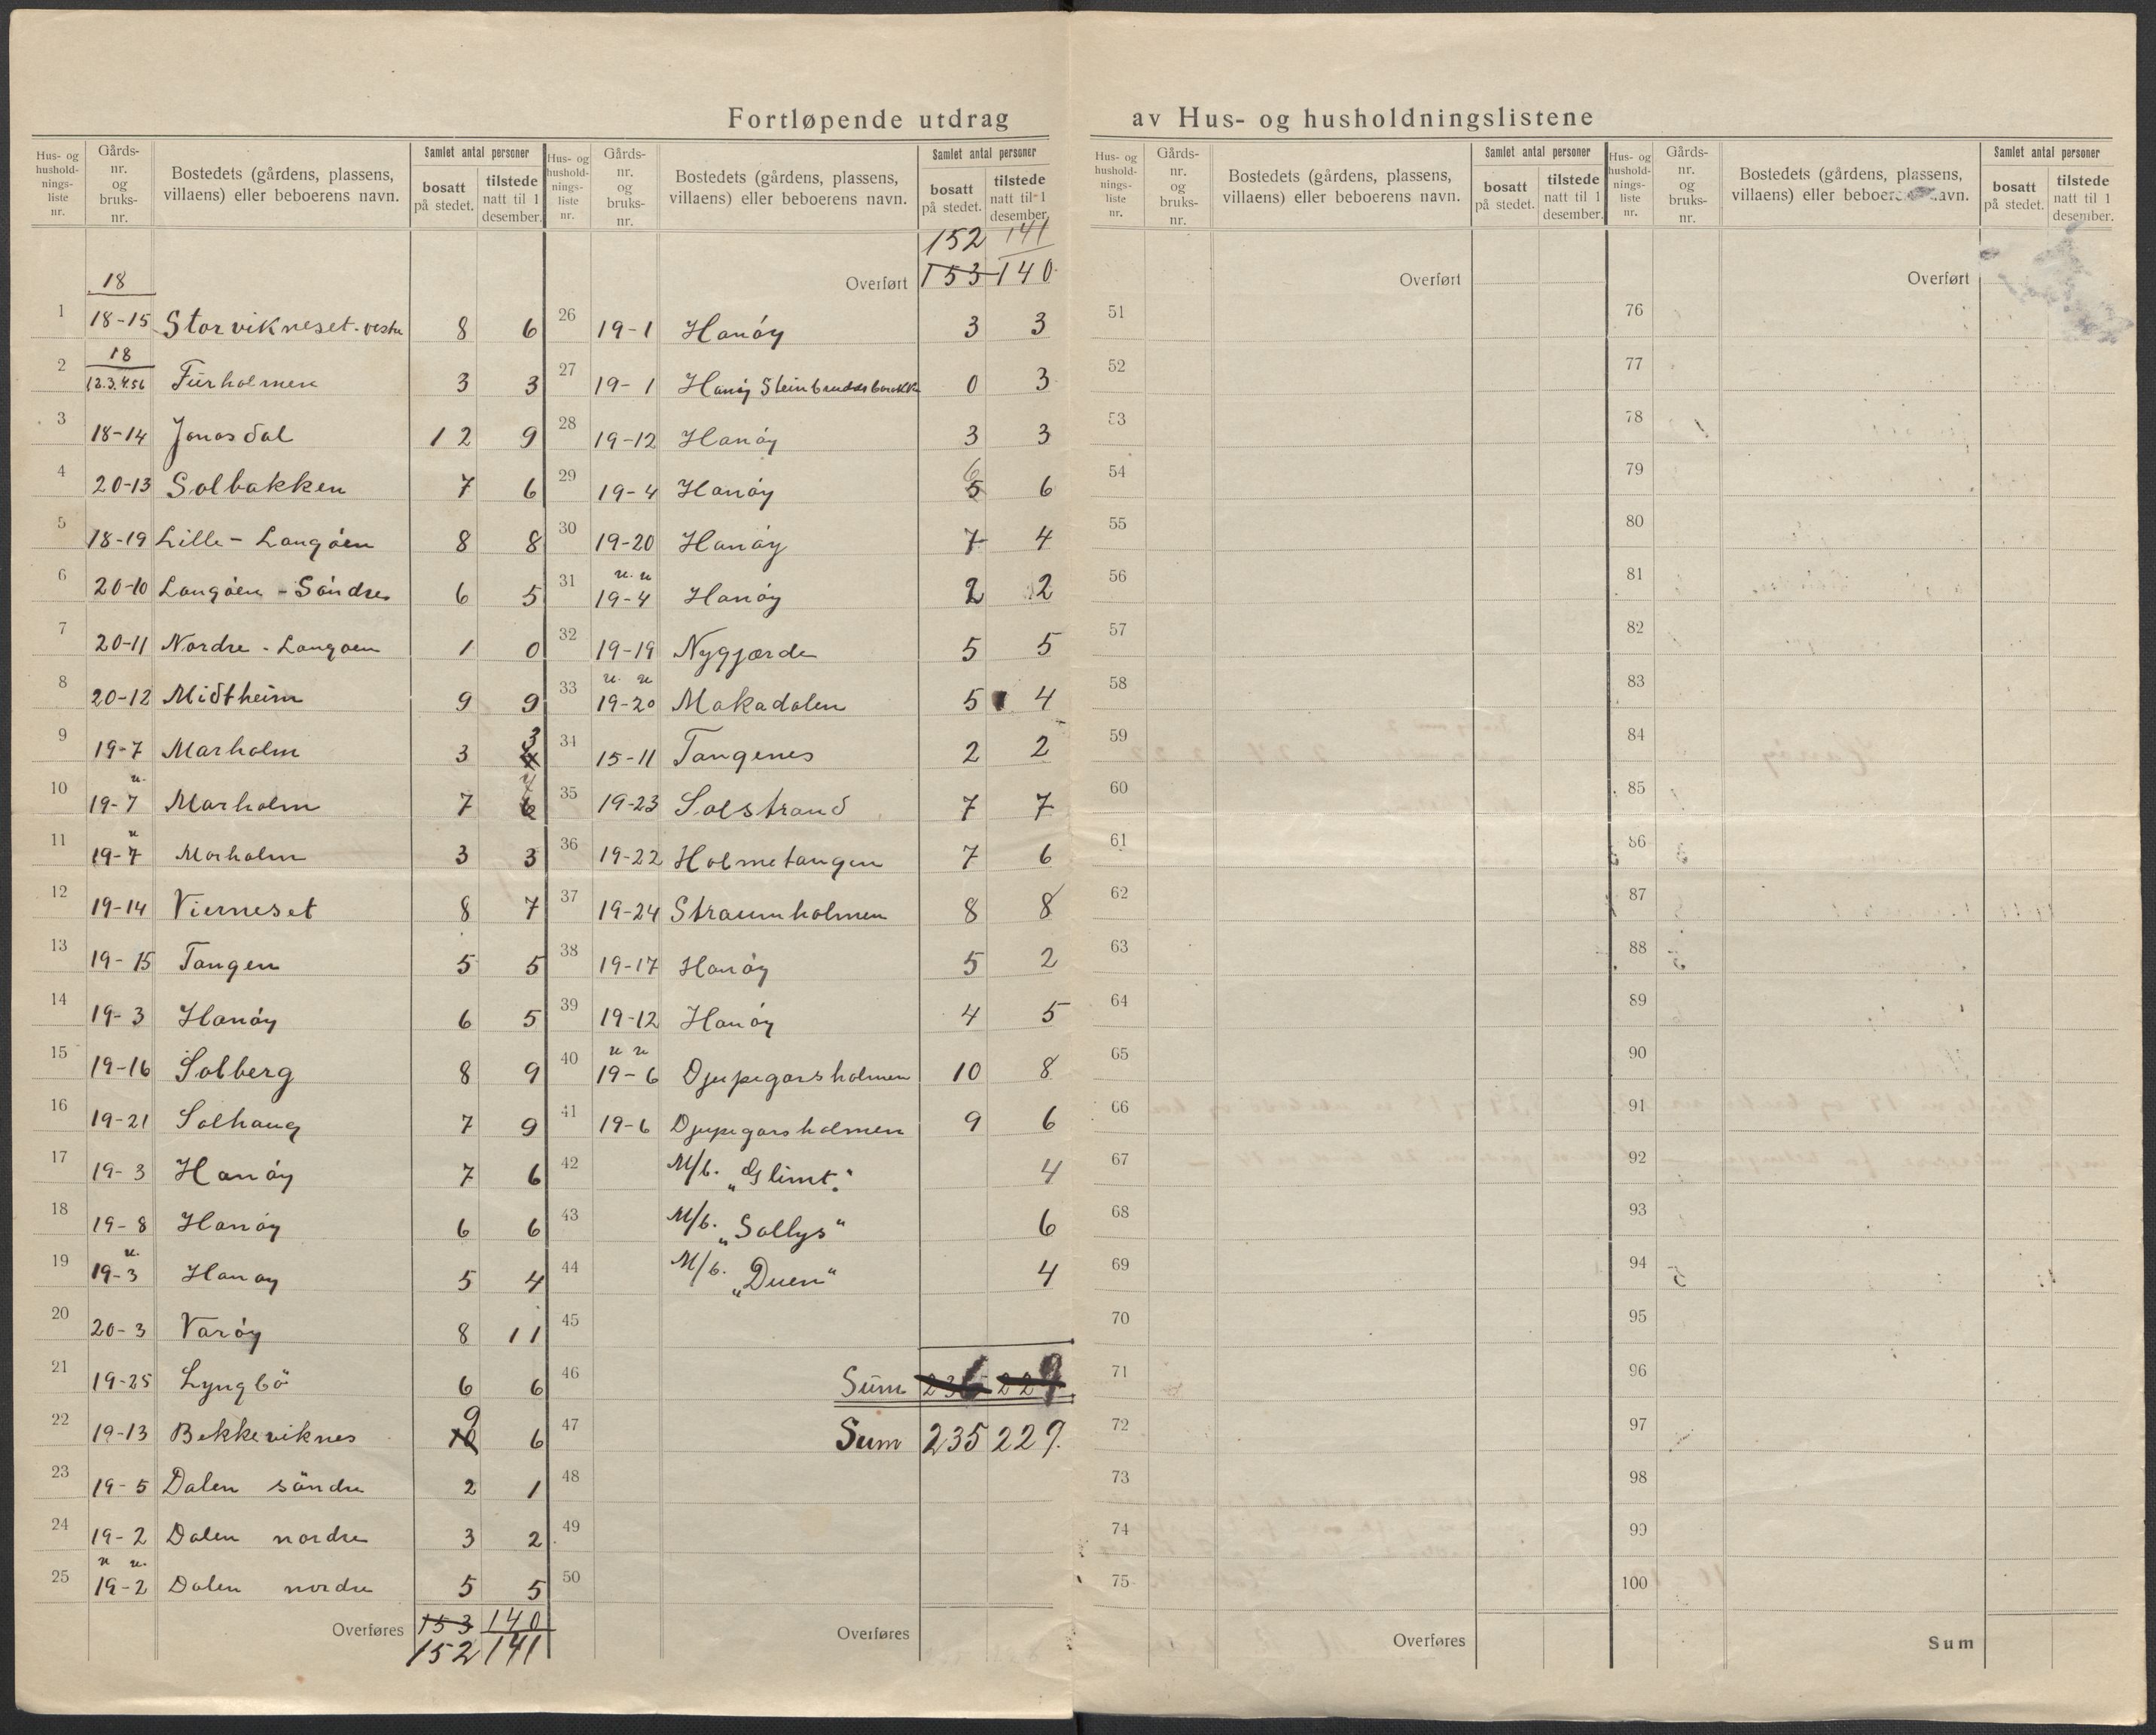 Fortløpende utdrag av Hus- og husholdningslistene
Hus- og hushold-nings-liste nr. Gårds-nr. og bruks-nr. Bostedets (gårdens, plassens, villaens) eller beboerens navn. Samlet antal personer bosatt på stedet. tilstede natt til 1 desember.
18
1 18-15 Storvikneset-vestre 8 6
18
2 12.3.4.56 Furholmen 3 3
3 18-14 Jonasdal 12 9
4 20-13 Solbakken 7 6
5 18-19 Lille-Langøen 8 8
6 20-10 Langøen-Söndre 6 5
7 20-11 Nordre-Langøen 1 0
8 20-12 Midtheim 9 9
9 19-7 Marholm 3 3 4
u.
10 19-7 Marholm 7 6
u
11 19-7 Marholm 3 3
12 19-14 Vierneset 8 7
13 19-15 Tangen 5 5
14 19-3 Hanöy 6 5
15 19-16 Solberg 8 9
16 19-21 Solhaug 7 9
17 19-3 Hanöy 7 6
18 19-8 Hanöy 6 6
u.
19 19-3 Hanøy 5 4
20 20-3 Varöy 8 11
21 19-25 Lyngbö 6 6
22 19-13 Bekkeviknes 10 9 6
23 19-5 Dalen söndre 2 1
24 19-2 Dalen nordre 3 2
u u.
25 19-2 Dalen nordre 5 5
Overføres 153 140
152 141
Hus- og hushold-nings-liste nr. Gårds-nr. og bruks-nr. Bostedets (gårdens, plassens, villaens) eller beboerens navn. Samlet antal personer bosatt på stedet. tilstede natt til 1 desember.
152 141
Overført 153 140
26 19-1 Hanöy 3 3
27 19-1 Hanöy Steinbruddsbarakke 0 3
28 19-12 Hanöy 3 3
29 19-4 Hanöy 5 6 6
30 19-20 Hanöy 7 4
u. u
31 19-4 Hanöy 2 2
32 19-19 Nygjærde 5 5
u. u
33 19-20 Makadalen 5 4
34 15-11 Tangenes 2 2
35 19-23 Solstrand 7 7
36 19-22 Holmetangen 7 6
37 19-24 Straumholmen 8 8
38 19-17 Hanöy 5 2
39 19-12 Hanöy 4 5
u u
40 19-6 Djupegarsholmen 10 8
41 19-6 Djupegarsholmen 9 6
42 M/b. „Glimt." 4
43 M/b. „Sollys" 6
44 M/b. „Duen" 4
45
46 Sum 236 229
47 Sum 235 229.
48
49
50
Overføres
Hus- og hushold-nings-liste nr. Gårds-nr. og bruks-nr. Bostedets (gårdens, plassens, villaens) eller beboerens navn. Samlet antal personer bosatt på stedet. tilstede natt til 1 desember.
Overført
51
52
53
54
55
56
57
58
59
60
61
62
63
64
65
66
67
68
69
70
71
72
73
74
75
Overføres
Hus- og hushold-nings-liste nr. Gårds-nr. og bruks-nr. Bostedets (gårdens, plassens, villaens) eller beboerens navn. Samlet antal personer bosatt på stedet. tilstede natt til 1 desember.
Overført
76
77
78
79
80
81
82
83
84
85
86
87
88
89
90
91
92
93
94
95
96
97
98
99
100
Sum